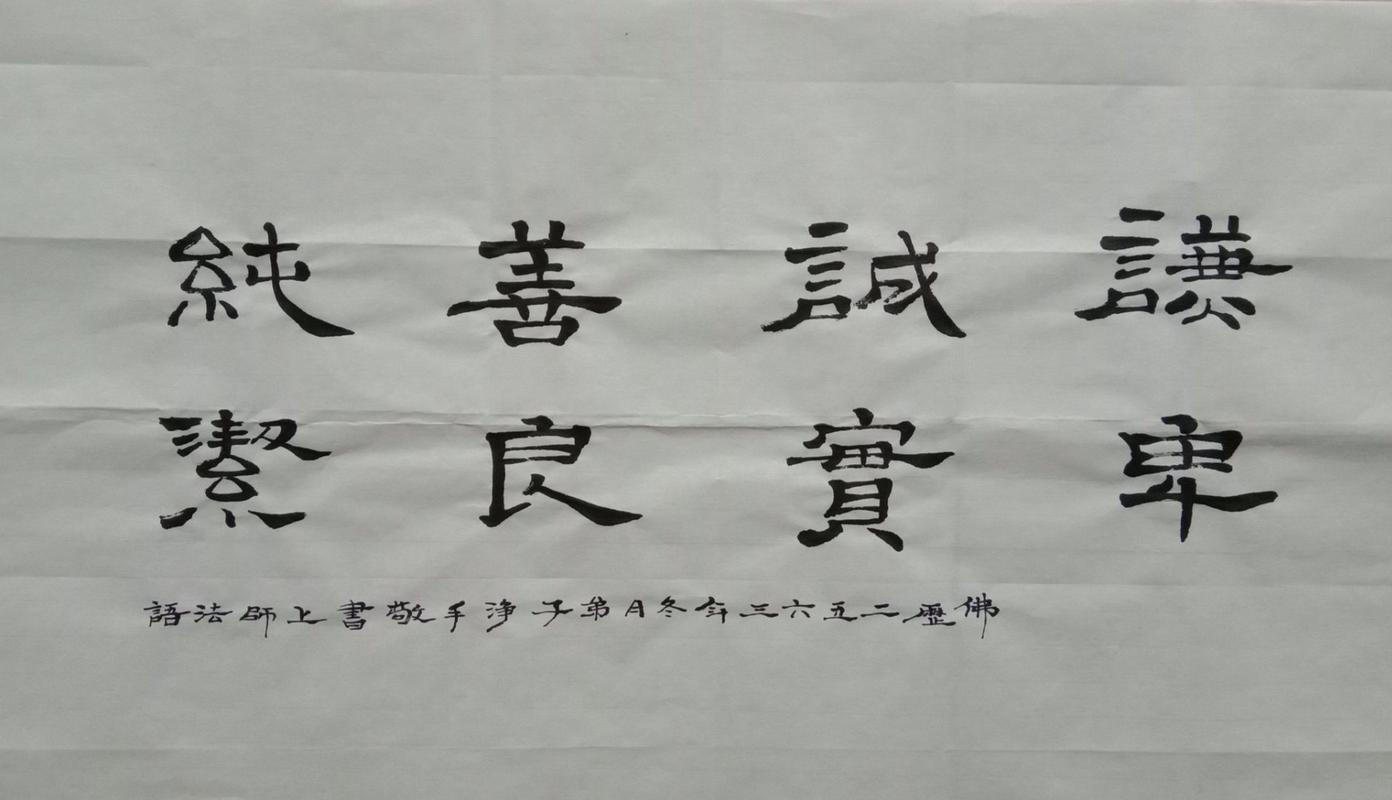 謙卑
誠實
善良
純潔
佛歷二五六三年冬月弟子淨手敬書上師法語